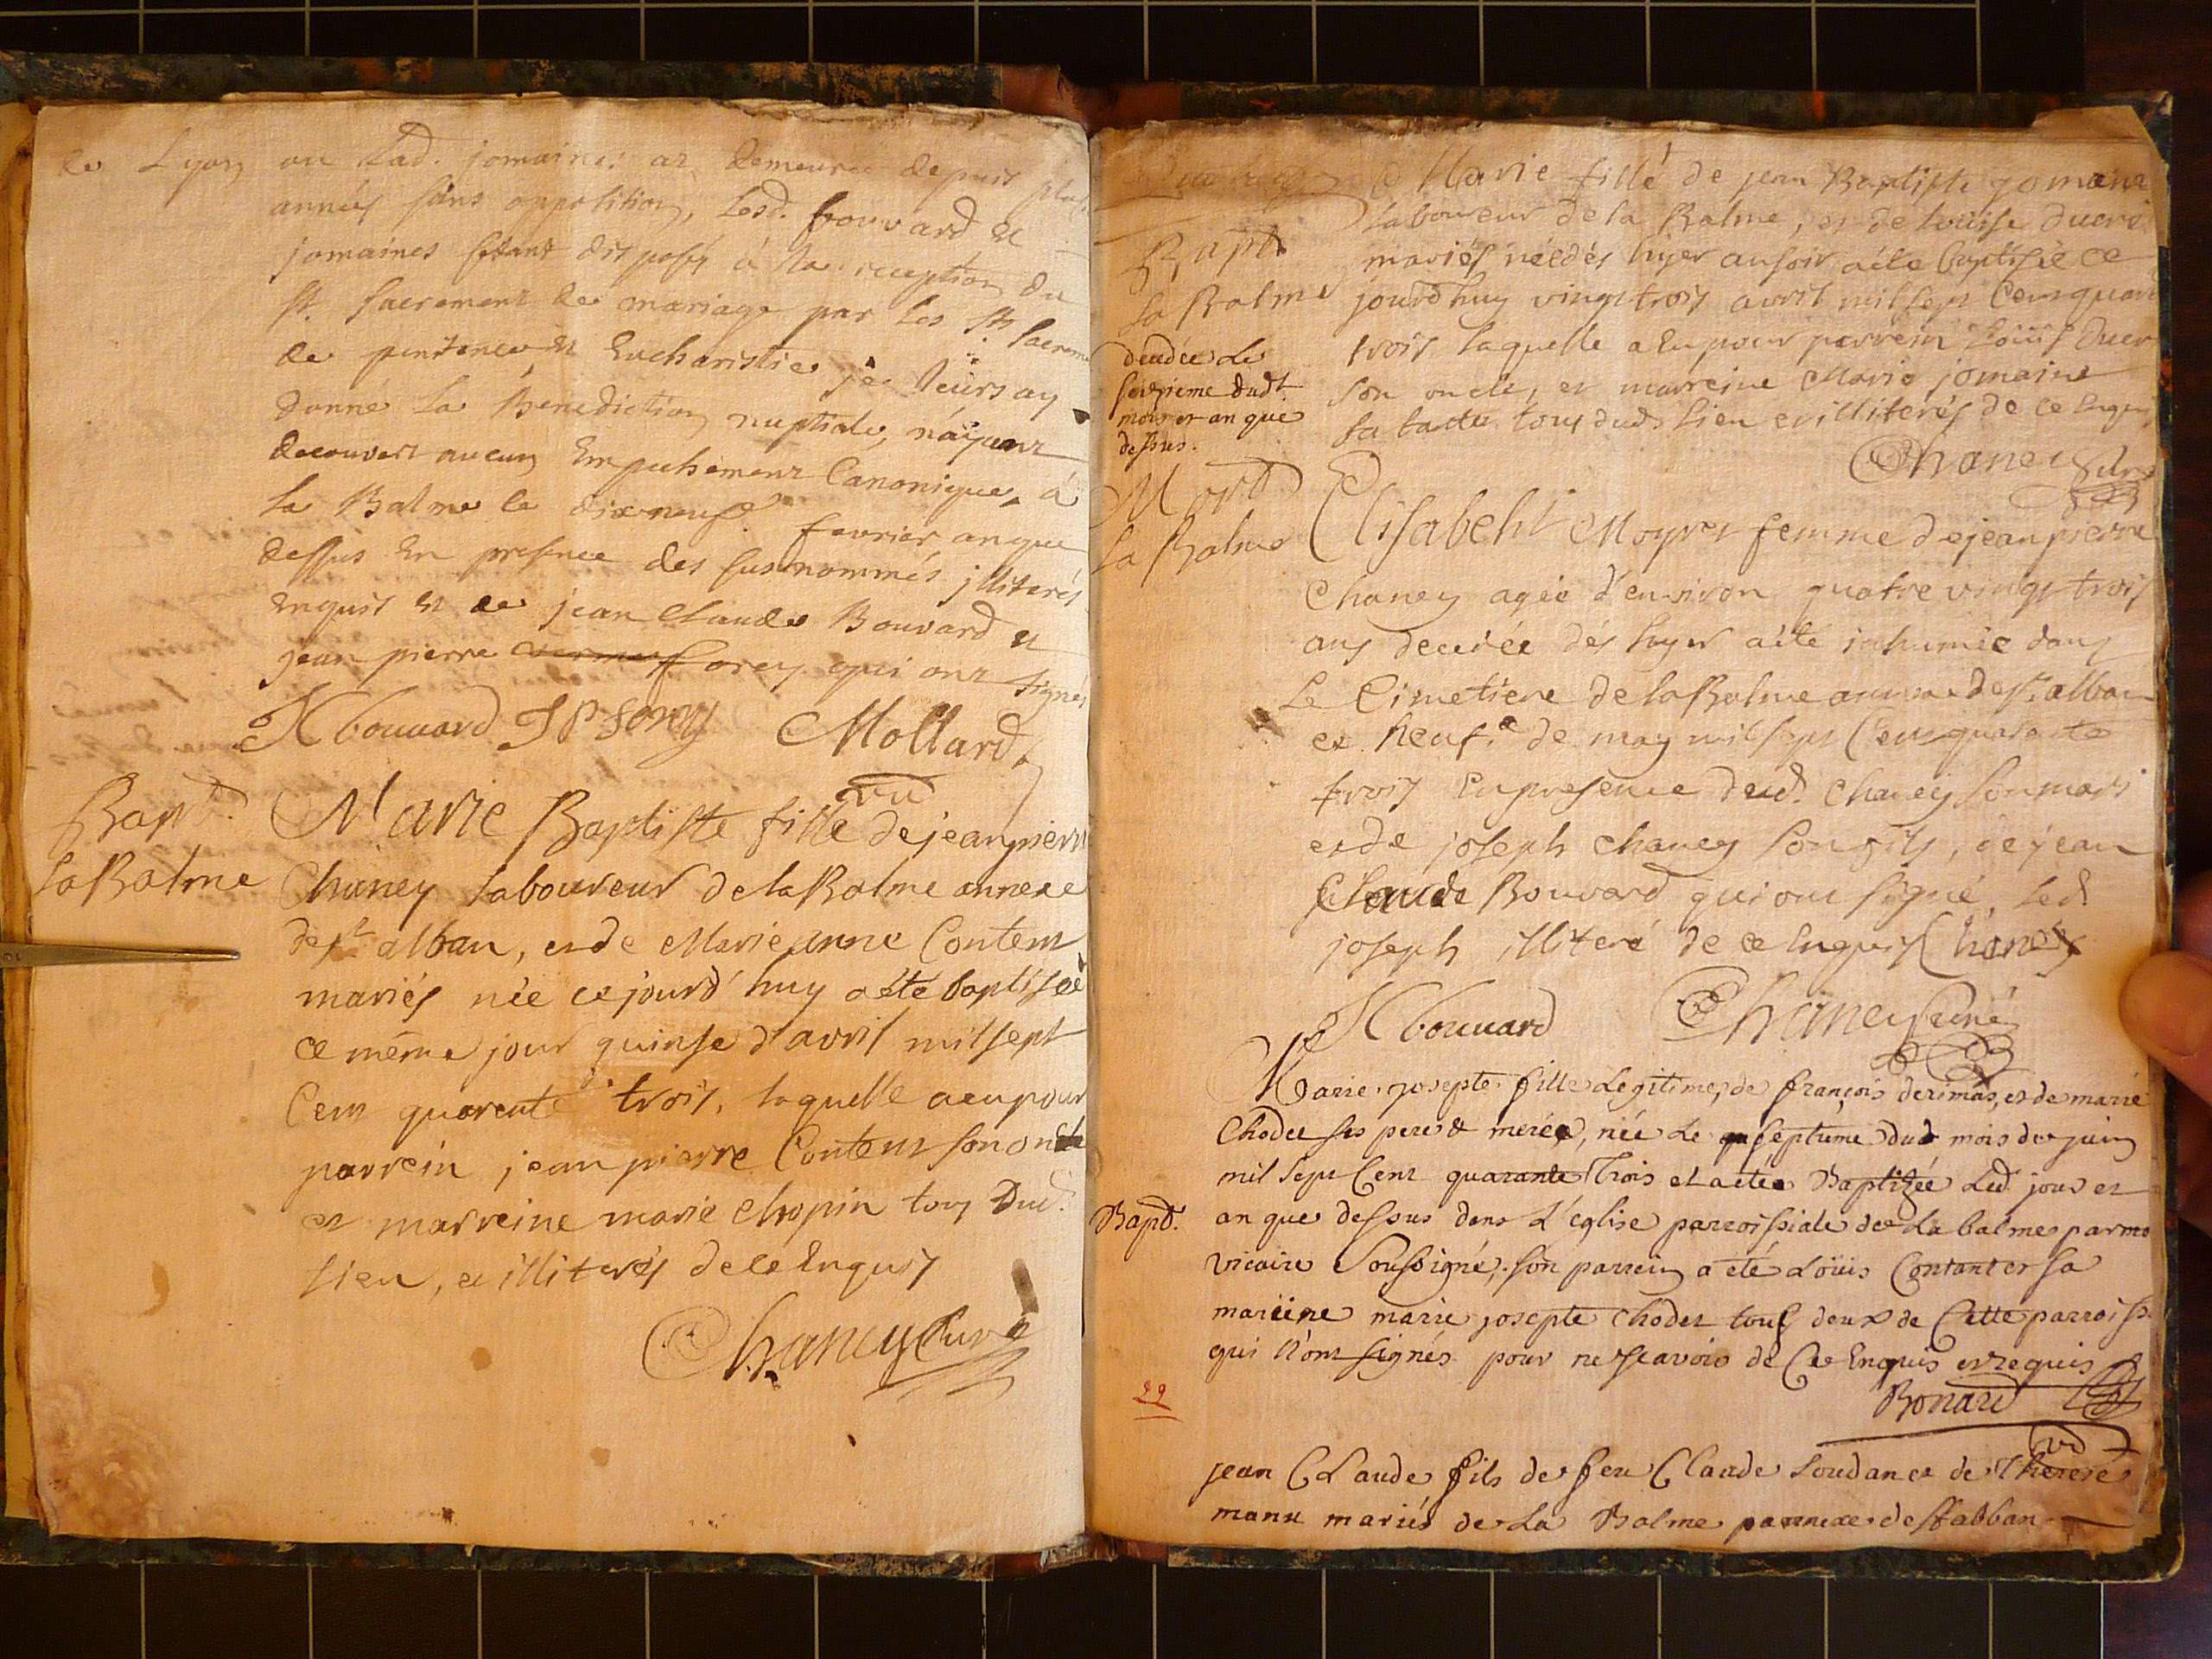 de Lyon ou lad. jomaine at demeuré depuis
années sans opposition, Lesd. bouvard et
jomaines s'etant disposés à la reception du
st. sacrement de mariage par les sts. sacrem
de penitence et Eucharistie je leurs ay
donné la Benediction nuptiale, n'ayant
decouvert aucun Empechement Canonique, à
la Balme le dixneufe. fevrier an que
dessus En presence des susnommés jlliterés
Enquis et de jean Claude Bouvard et
jean pierre forey qui ont signés
JC bouuard JP forey Mollard
vu
Bapt.
la Balme
Marie Baptiste fille de jean pierre
Chaney laboureur de la Balme annexe
de st alban, et de Marie anne Content
mariés née ce jourd'huy a été baptisée
ce même jour quinse d'avril mil sept
Cent quarente trois, laquelle a eu pour
parrein jean pierre Content son oncle
et marreine marie Chopin tous dud.
lieu, et illiterés de ce Enquis
Chaney Curé
Bapt.
la Balme
decedée le
mois et an que
dessus.
Marie fille de jean Baptiste jomain
laboureur de la Balme, et de Loüise ducr
mariés née dés hyer au soir a éte baptisée ce
jourd'huy vingt trois avril mil sept Cent quar
trois laquelle a eu pour parrein Loüis ducr
son oncle, et marreine Marie jomaine
sa tante tous dud. lieu et illiterés de ce Enquis
Chaney Curé
Mort
la Balme
Elisabeht Moyret femme de jean pierre
Chaney agée d'environ quatre vingt trois
ans decedée dés hyer a été inhumée dans
Le Cimetiere de la Balme annexe de st. alban
ce neufe. de may mil sept Cent quarante
trois En presence dud. Chaney son mari
et de joseph Chaney son fils, de jean
Claude Bouvard qui ont signé, led
joseph illiteré de ce Enquis Chaney
JC bouuard Chaney Curé
Bapt.
Marie josepte fille Legitime, de françois derimas, et de marie
Chodet ses pere & mere, née Le septieme dud mois de juin
mil Sept Cent quarante Trois et a etée Baptizée Led. jour et
an que dessus dans L'eglise parroissiale de La balme par mo
vicaire Soussigné, son parrein a été Loüis Contant et sa
mareine marie josepte Chodet tous deux de Cette parroiss
qui n'ont signés pour ne scavoir de Ce Enquis et requis
Bonard
22
vu
jean CLaude fils de feu Claude Soudan et de Therese
manu mariés de La Balme pannexe de st alban